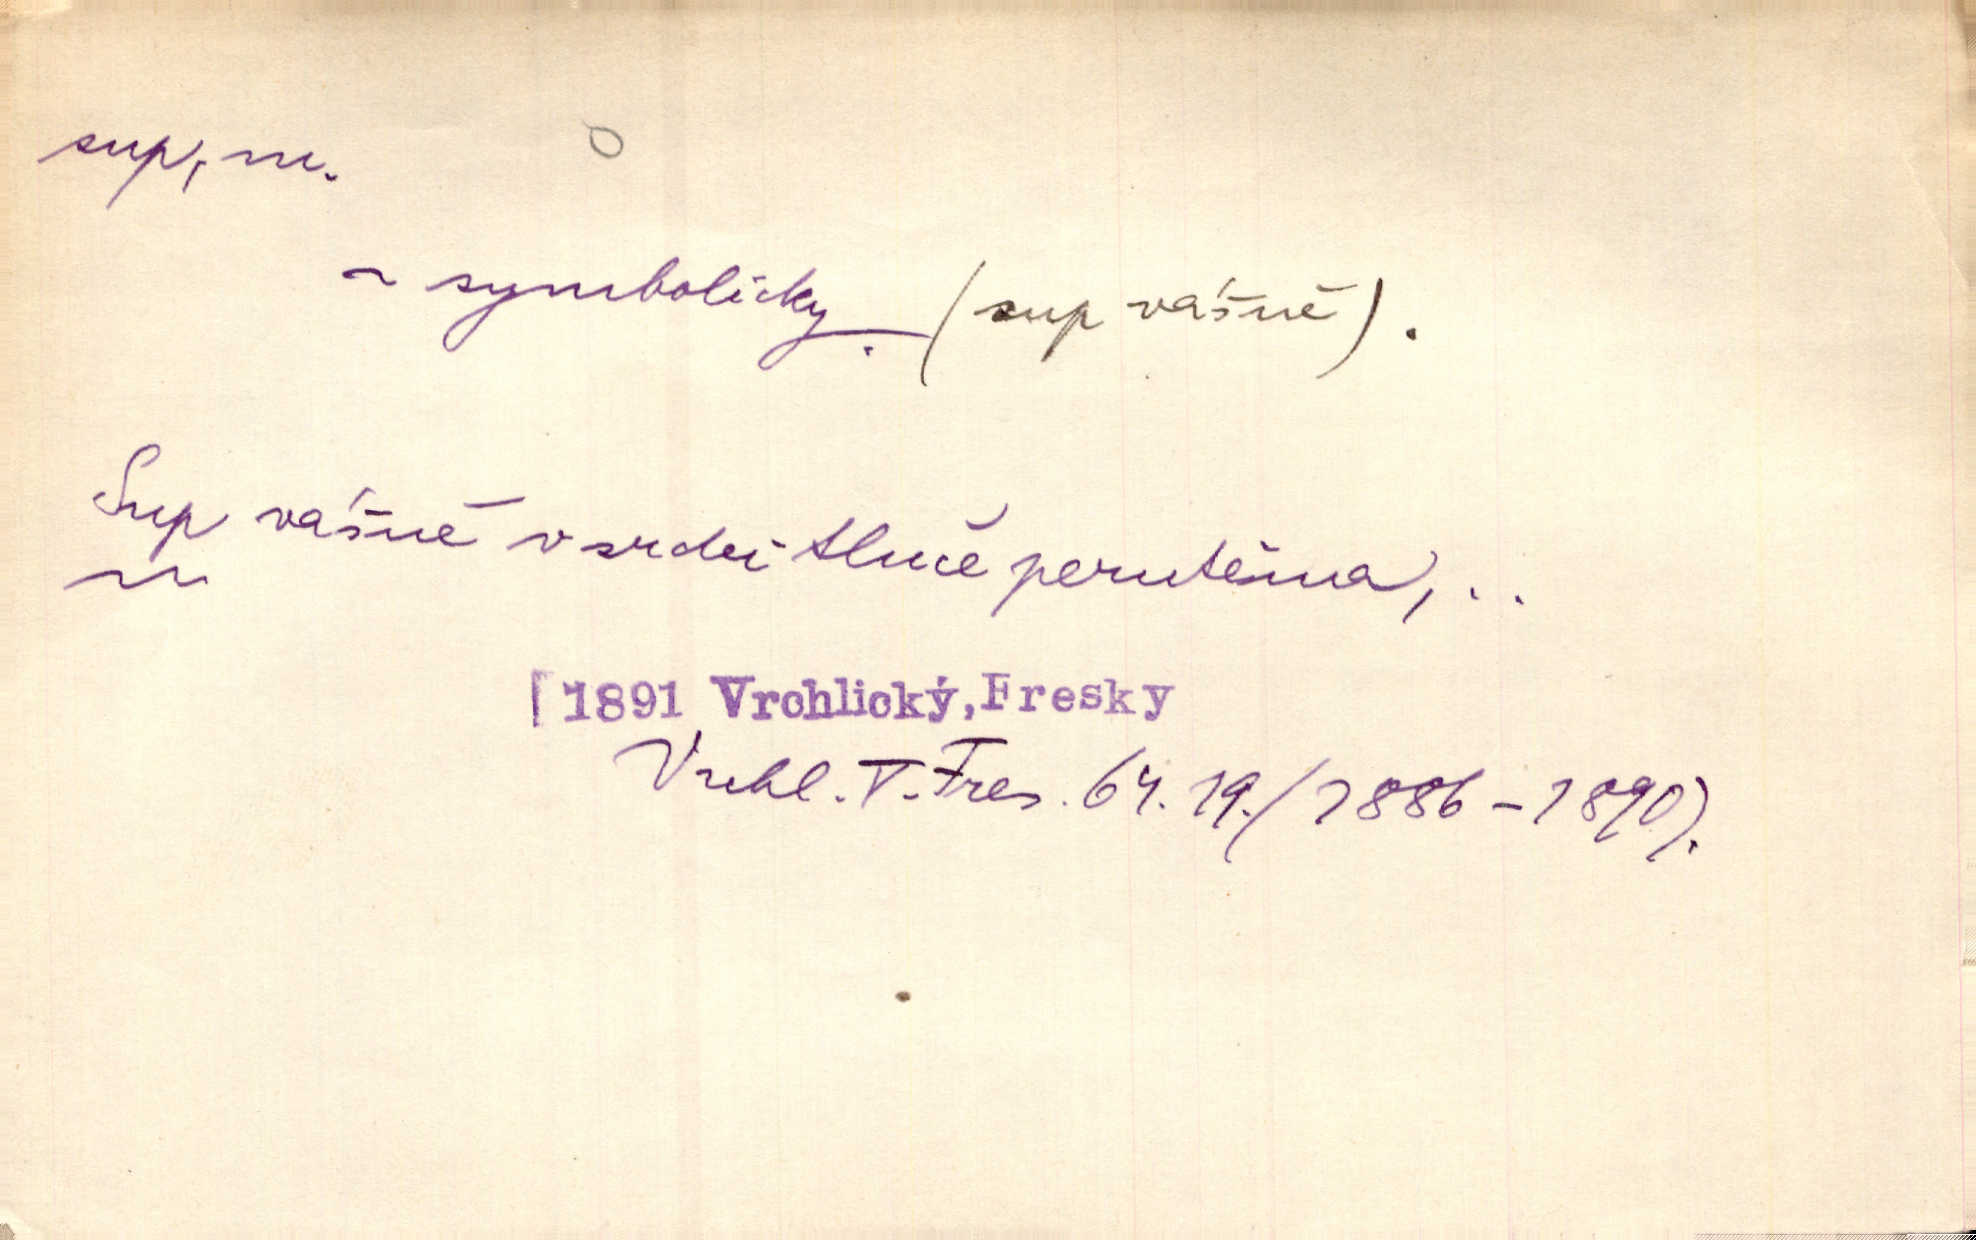 sup, m.
~ symbolicky. (sup vášně).
Sup vášně v srdci tluče perutěma, ..
1891 Vrchlický, Fresky
Vrchl. T. Fres. 64. 19. (1886-1890).